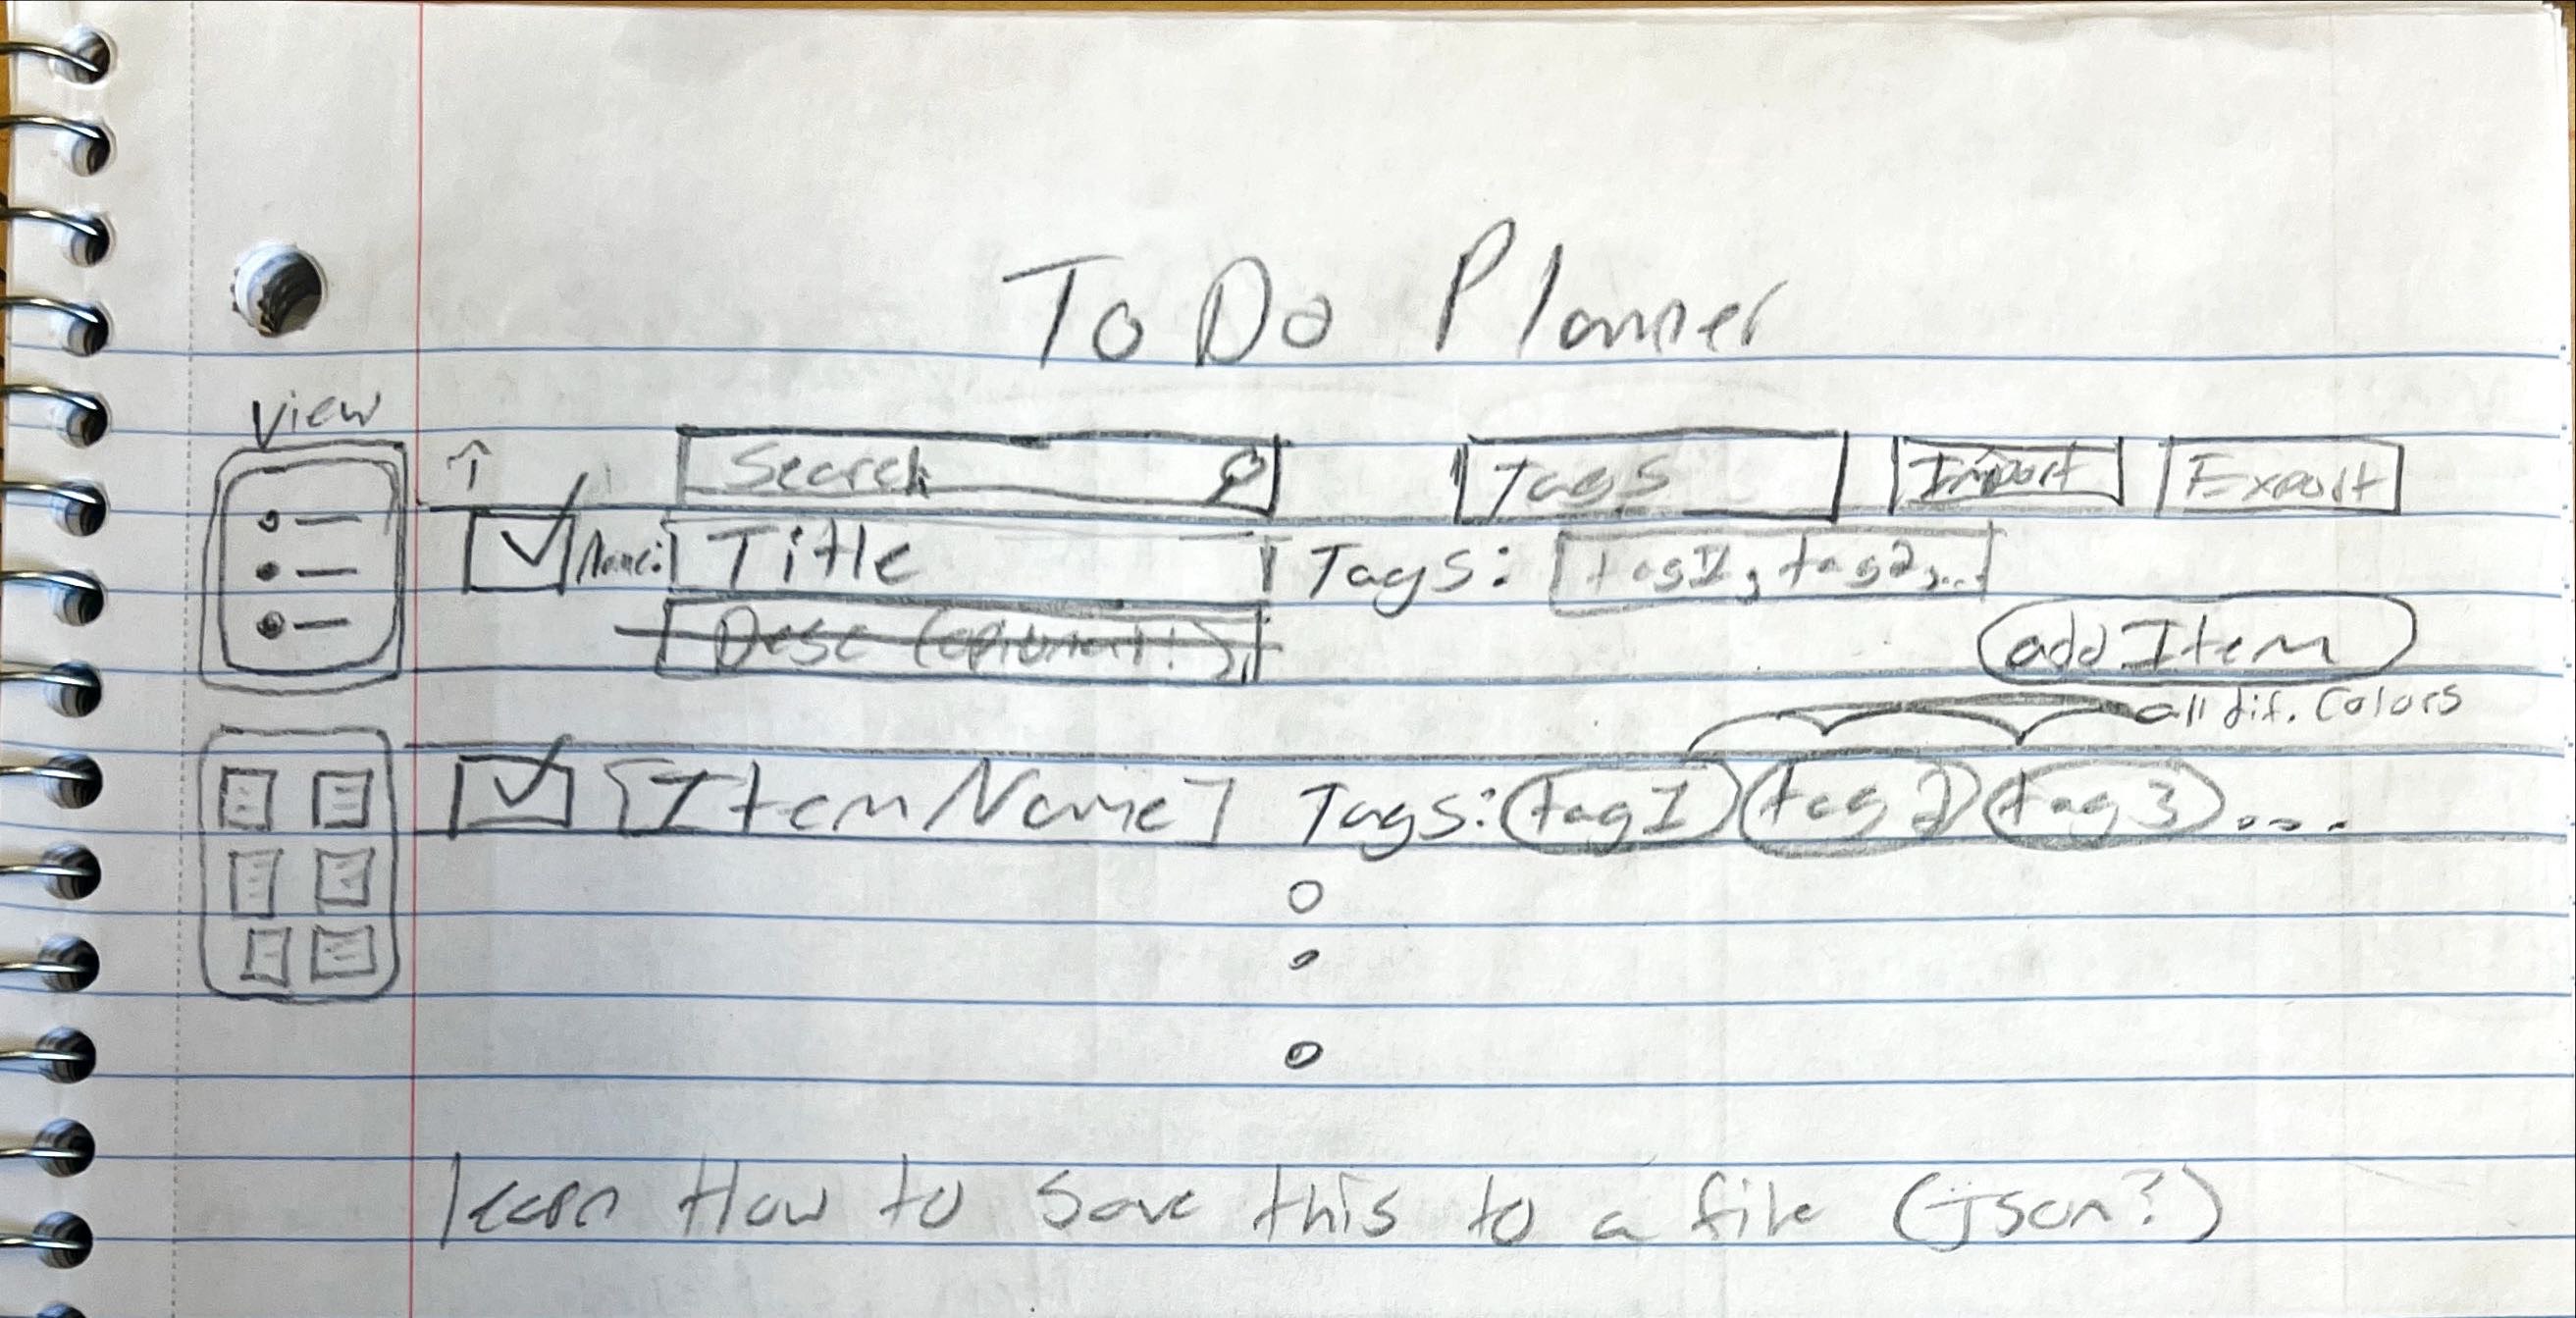 To Do Planner
View
Search Tags Import Export
Name: Title Tags: tag1, tag2,...
Desc (optional)
add Item
all dif. colors
[Item Name] Tags: tag1 tag2 tag3 ....
learn How to save this to a file (json?)